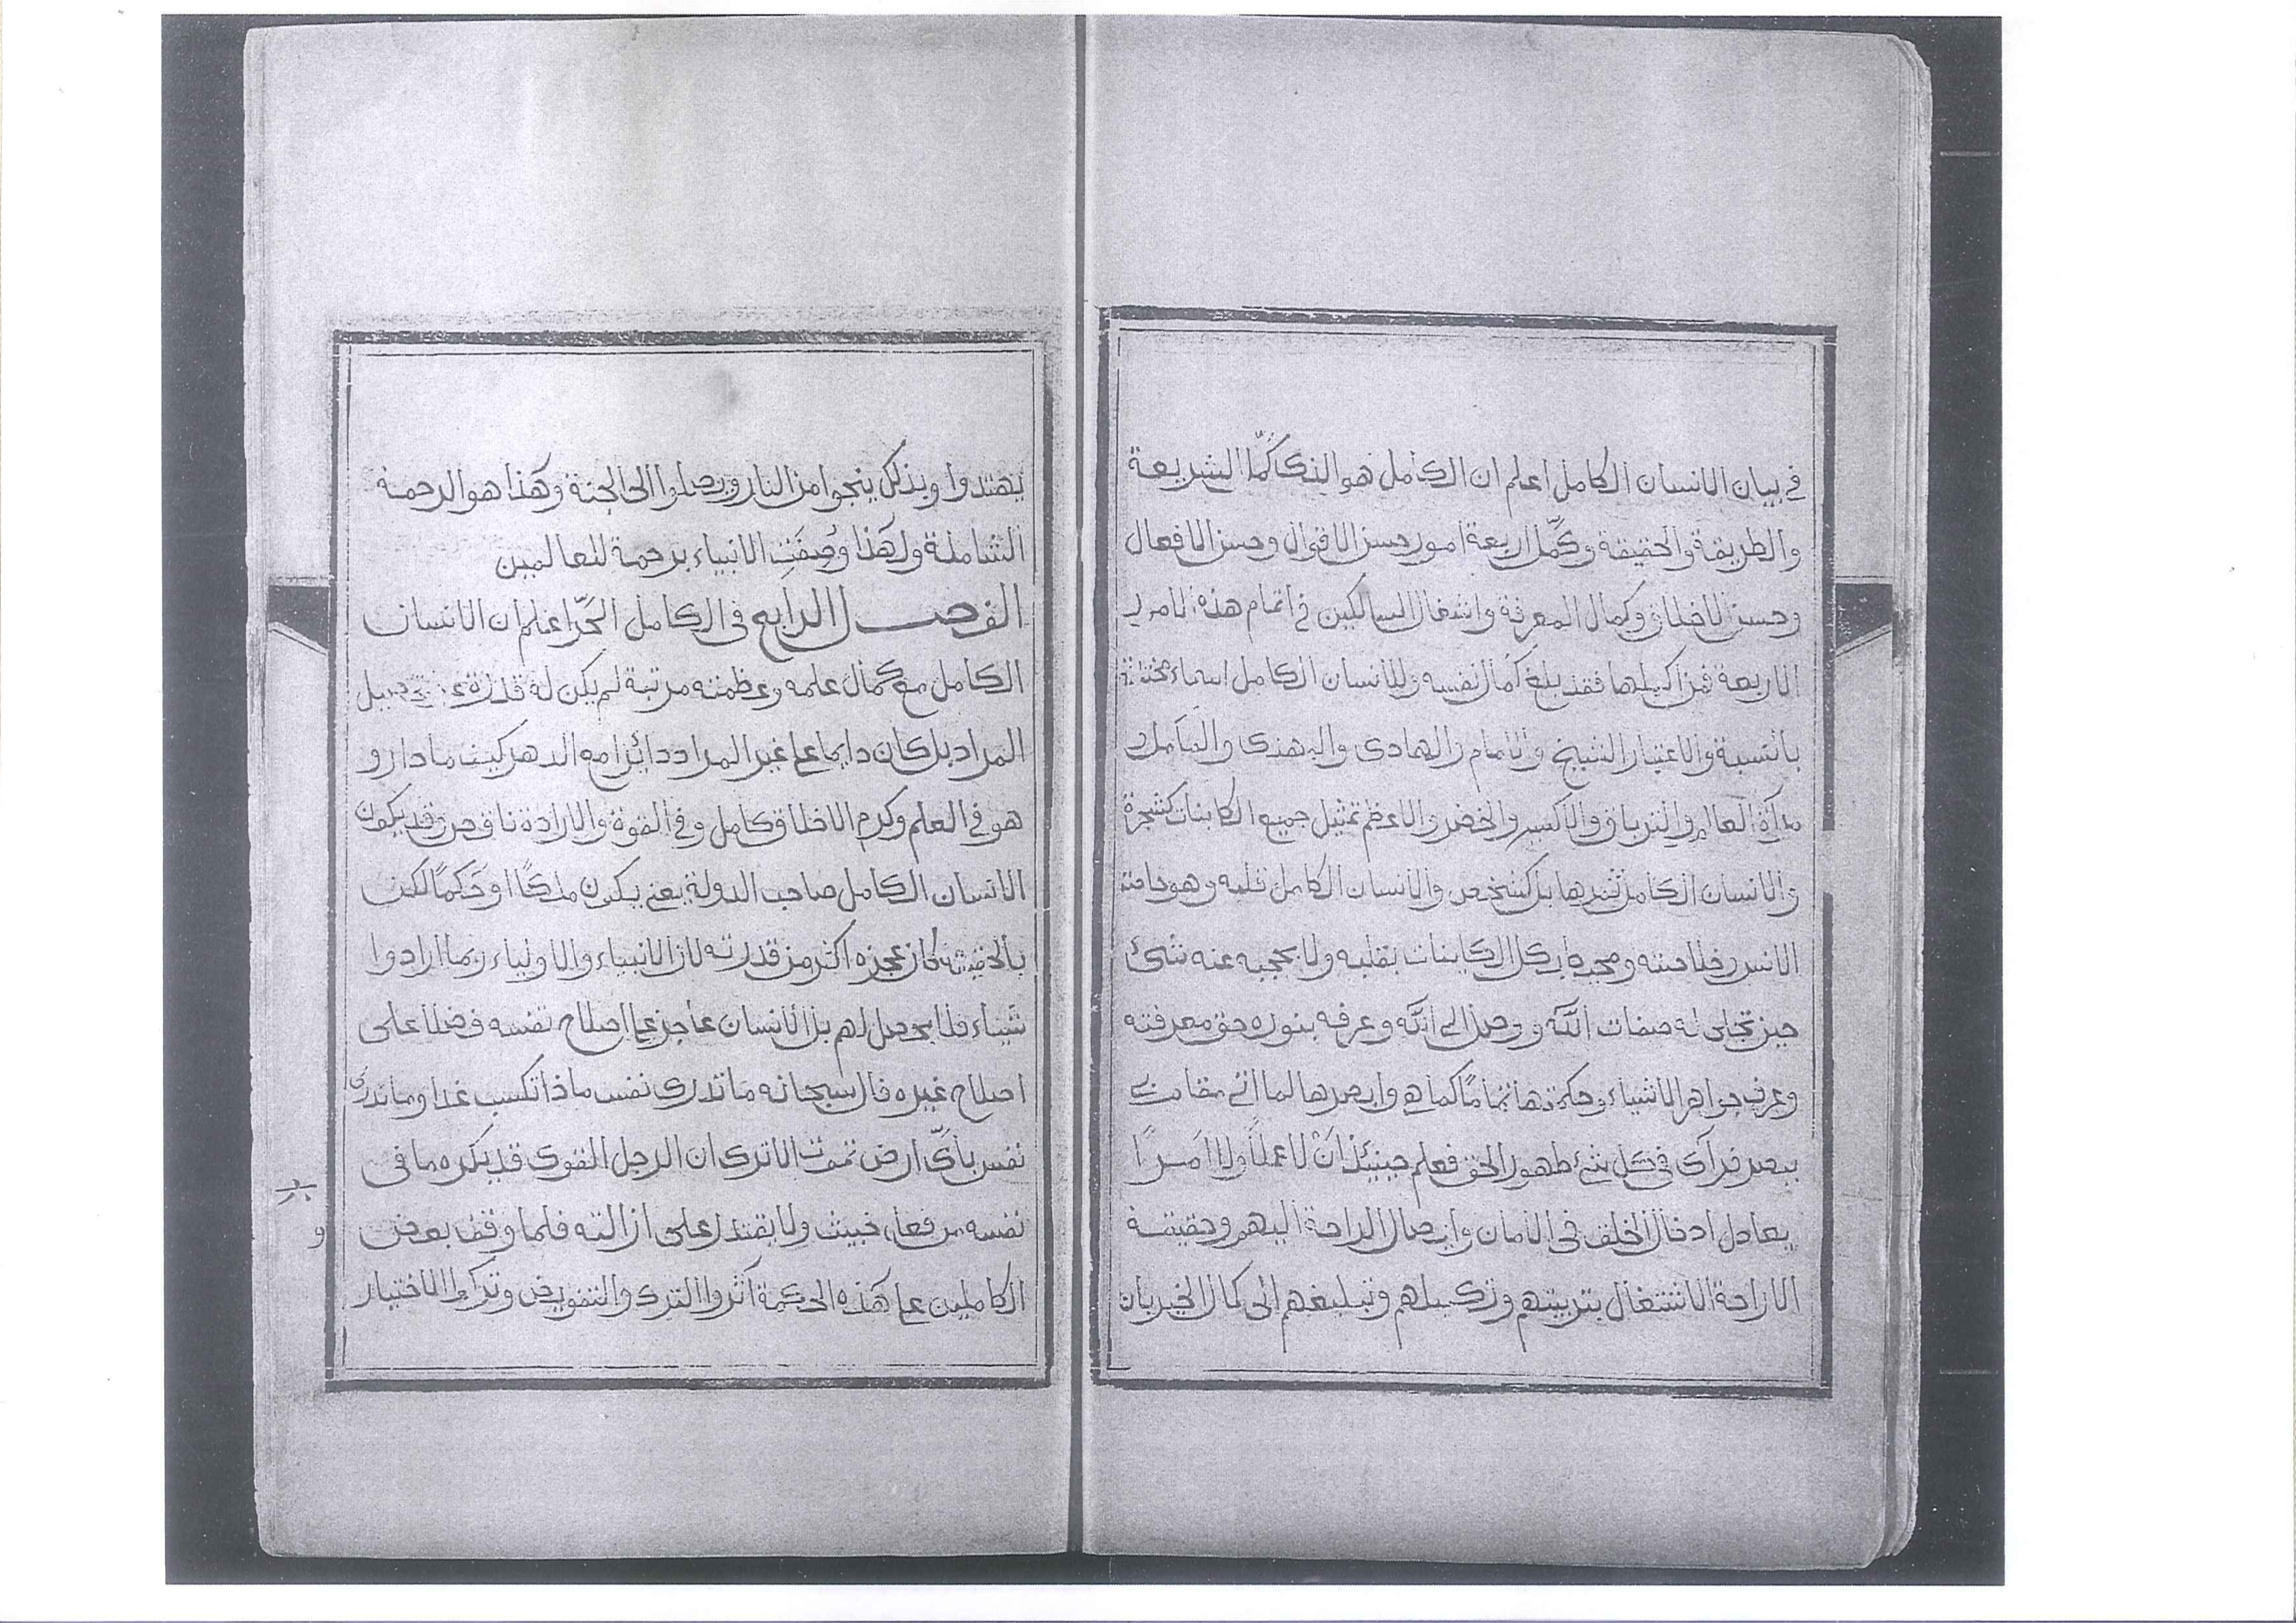 في بيان الانسان الكامل اعلم ان الكامل هو الذي كمّل الشريعة
والطريقة والحقيقة وكمّل اربعة امور حسن الاقوال وحسن الافعال
وحسن الاخلاق وكمال المعرفة واشغال السالكين في اتمام هذه الامور
الاربعة فمن اكملها فقد بلغ كمال نفسه وللانسان الكامل اسماء مختلفة
بالنسبة والاعتبار الشيخ والامام والهادى والمهتدى والكامل و
مرآة العالم والترياق والاكسير والخضر والاعظم تمثيل جميع الكاينات كشجرة
والانسان الكامل ثمرها بل كشخص والانسان الكامل قلبه وهو خاصة
الانس وخلاصته ومحيط بكل الكاينات بقلبه ولا يحجبه عنه شئ
حين تجلى له صفات الله ووصل الى الله وعرفه بنوره حق معرفته
وعرف جواهر الاشياء وحكمتها تمامًا كما هي وابصرها لما اتى مقام بى
يبصر فرآى في كل شئ ظهور الحق فعلم حينئذ ان لا عملًا ولا امرًا
يعادل ادخال الخلق في الامان وايصال الراحة اليهم وحقيقة
الاراحة الاشتغال بتربيتهم وتكميلهم وتبليغهم الى كمال الخير بان
يهتدوا وبذلك ينجوا من النار ويصلوا الى الجنة وهذا هو الرحمة
الشاملة ولهذا وُصِفَت الانبياء برحمة للعالمين
الفصل الرابع في الكامل الحرّ اعلم ان الانسان
الكامل مع كمال علمه وعظمته مرتبة لم يكن له قدرة على تحصيل
المراد بل كان دايما على غير المراد دائرا مع الدهر كيف ما دار و
هو في العلم وكرم الاخلاق كامل وفي القوة والارادة ناقص وقد يكون
الانسان الكامل صاحب الدولة يعني يكون ملكًا او حَكمًا لكن
بالحقيقة كان عجزه اكثر من قدرته لان الانبياء والاولياء ربما ارادوا
شيئاء فلا يحصل لهم بل الانسان عاجز على اصلاح نفسه فضلا على
اصلاح غيره قال سبحانه ما تدرى نفس ماذا تكسب غدا وما تدرى
نفس بأىّ ارض تموت الا ترى ان الرجل القوى قد يكره ما في
نفسه من فعل خبيث ولا يقتدر على ازالته فلما وقف بعض
الكاملين على هذه الحكمة آثروا الترك والتفويض وتركوا الاختيار
و